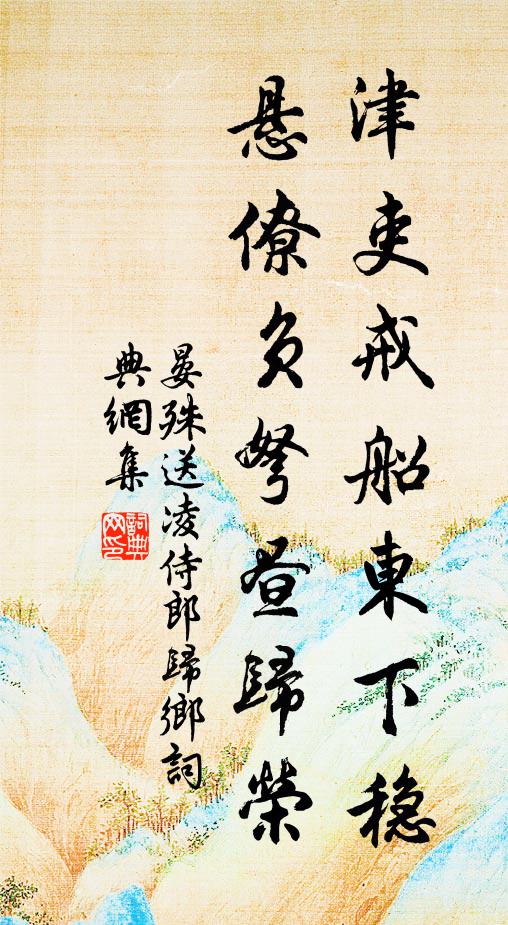 津吏戒船東下穏
悬僚負弩昼歸榮
晏殊送凌侍郎歸鄉詞
典網集
詞典網印